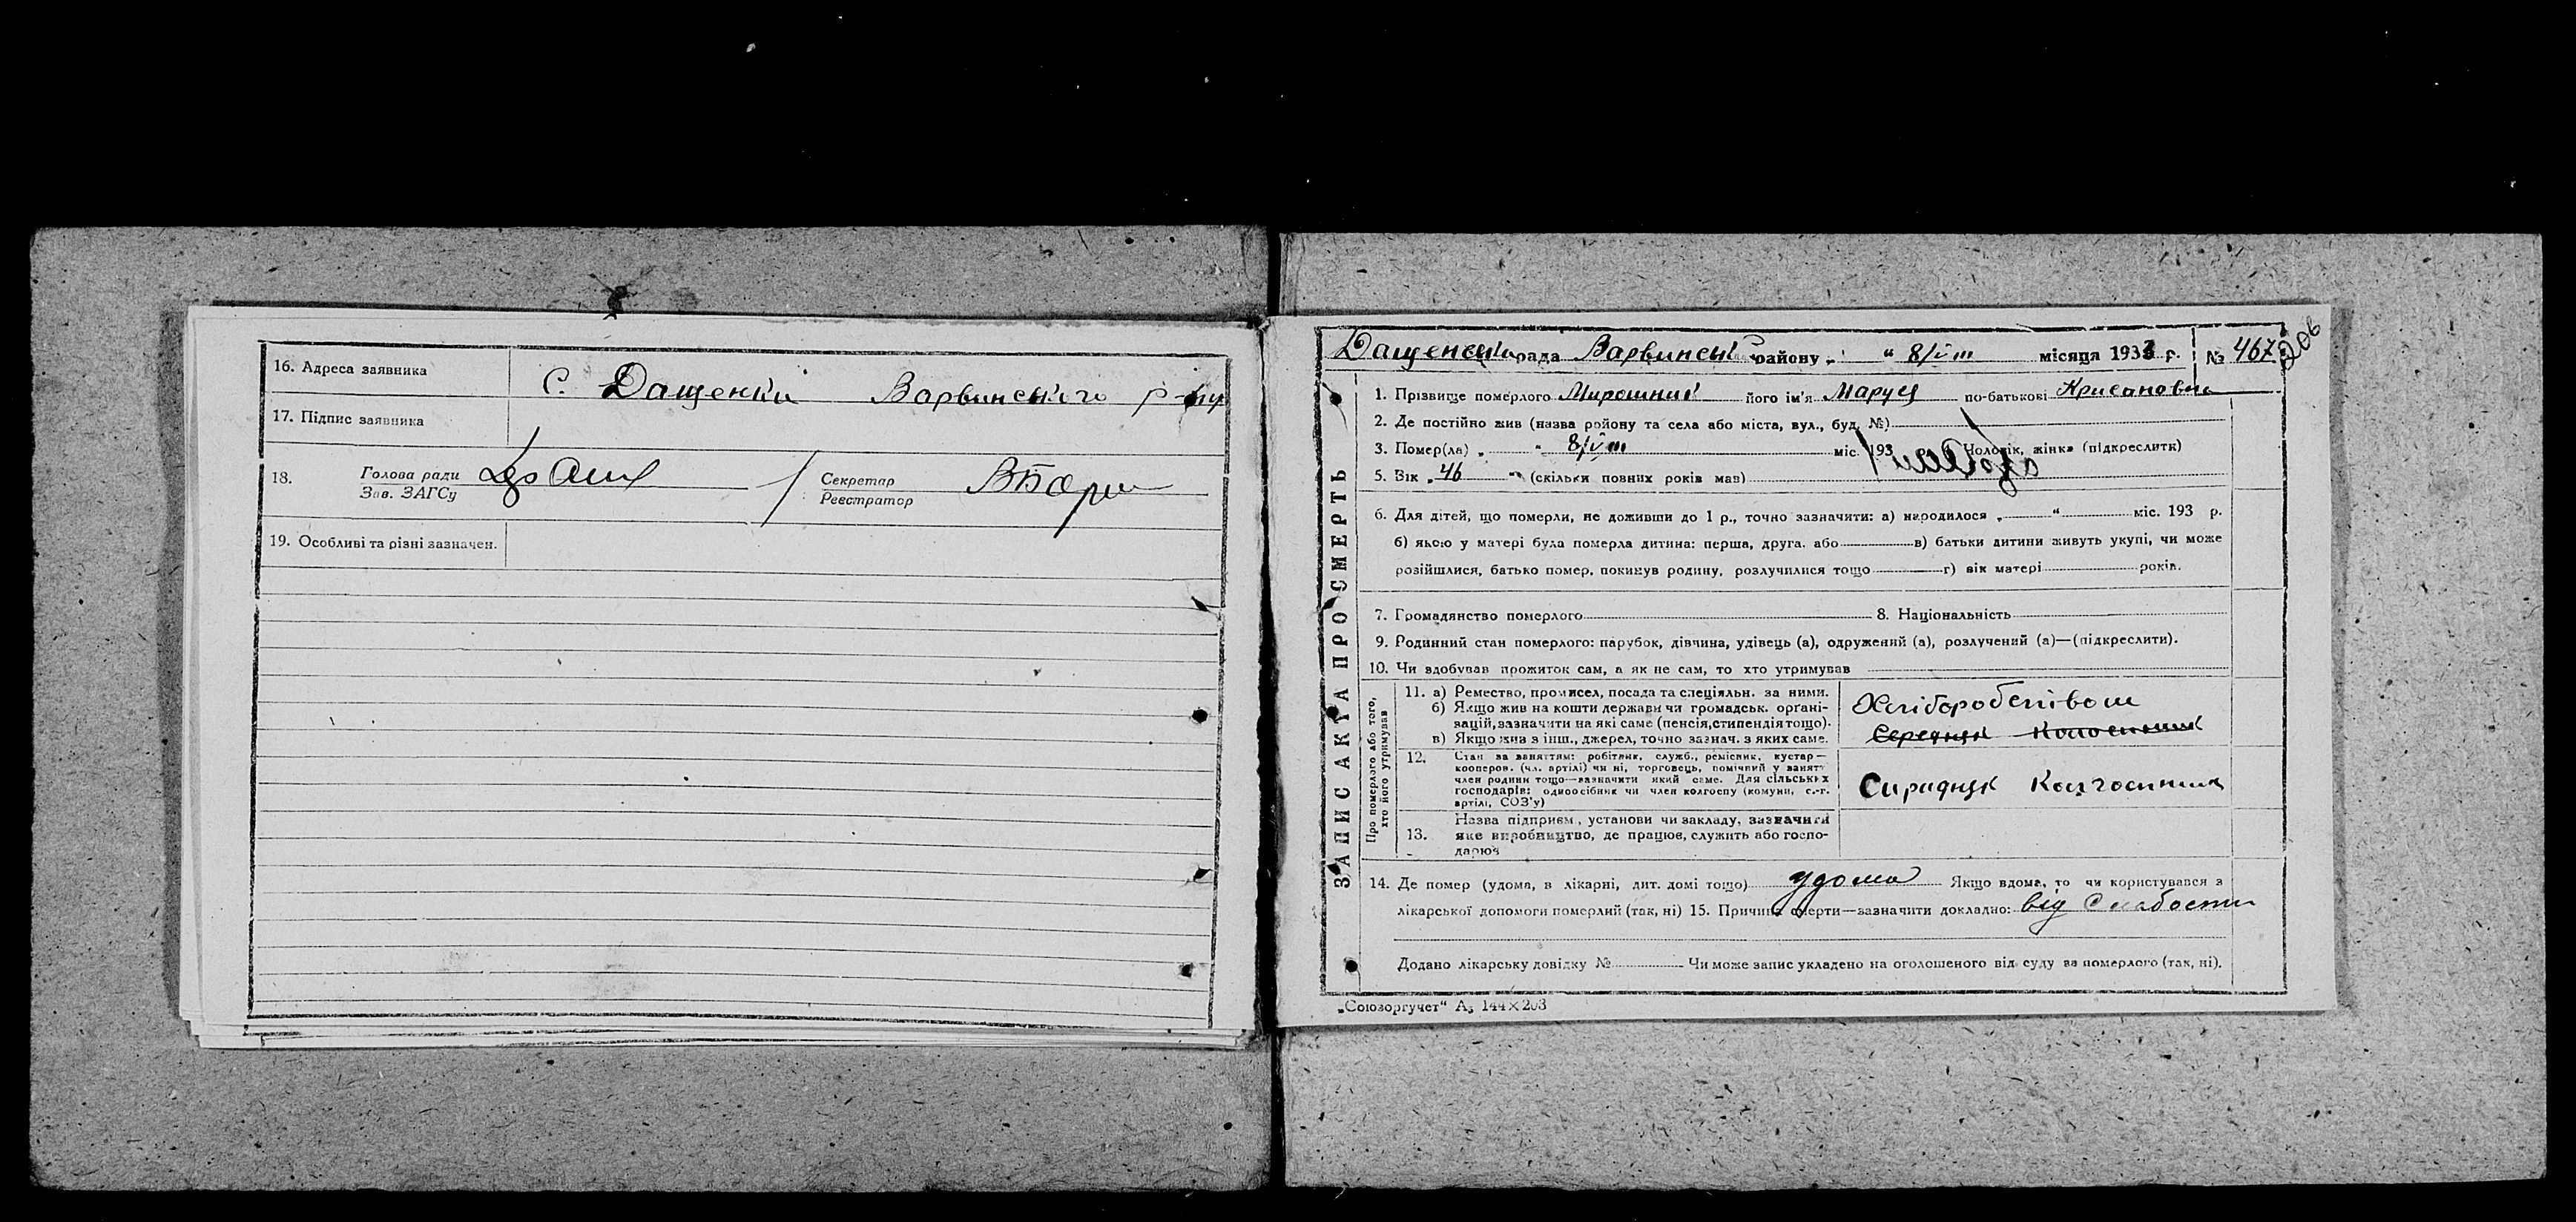 16. Адреса заявника
с. Дащенки Варвинського р-ну
17. Підпис заявника
18. Голова ради
Зав. ЗАГСу
Секретар
Реєстратор
19. Особливі та різні зазначен.
206
рада Варвинськ району „ “ 8/VIII місяця 1933 р. № 467
ЗАПИС АКТА ПРО СМЕРТЬ
1. Прізвище померлого Мирошник його ім'я Маруся по-батькові Крисановна
2. Де постійно жив (назва району та села або міста, вул., буд. №)
3. Помер(ла) „ “ 8/VIII міс. 193 Чоловік, жінка (підкреслити)
5. Вік „ 46 “ (скільки повних років мав)
6. Для дітей, що померли, не доживши до 1 р., точно зазначити: а) народилося „ “ міс. 193 р.
б) якою у матері була померла дитина: перша, друга. або в) батьки дитини живуть укупі, чи може
розійшлися, батько помер, покинув родину, розлучилися тощо г) вік матері років.
7. Громадянство померлого 8. Національність
9. Родинний стан померлого: парубок, дівчина, удівець (а), одружений (а), розлучений (а)—(підкреслити).
10. Чи здобував прожиток сам, а як не сам, то хто утримував
Про померлого або того,
хто його утримував
11. а) Ремество, промисел, посада та спеціяльн. за ними.
б) Якщо жив на кошти держави чи громадськ. органі-
зацій, зазначити на які саме (пенсія, стипендія тощо).
в) Якщо жив з інш., джерел, точно зазнач. з яких саме.
Хліборобством
Середняк
12. Стан за заняттям: робітник, служб., ремісник, кустар—
кооперов. (чл. артілі) чи ні, торговець, помічний у занятт
член родини тощо—зазначити який саме. Для сільських
господарів: одноосібник чи член колгоспу (комуни, с.-г.
артілі, СОЗ'у)
Сиредняк Колгоспник
13. Назва підприєм, установи чи закладу, зазначити
яке виробництво, де працює, служить або госпо-
дарює
14. Де помер (удома, в лікарні, дит. домі тощо) удома Якщо вдома, то чи користувався з
лікарської допомоги померлий (так, ні) 15. Причина смерти—зазначити докладно: від Слабости
Додано лікарську довідку № Чи може запис укладено на оголошеного від суду за померлого (так, ні).
„Союзоргучет“ А₅ 144×203